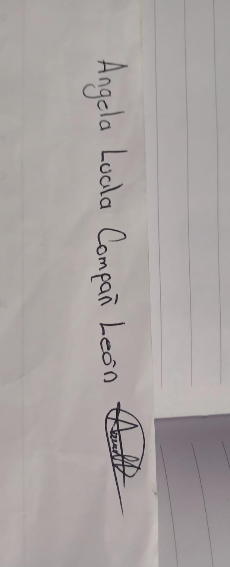 Angela Lucia Compañ León